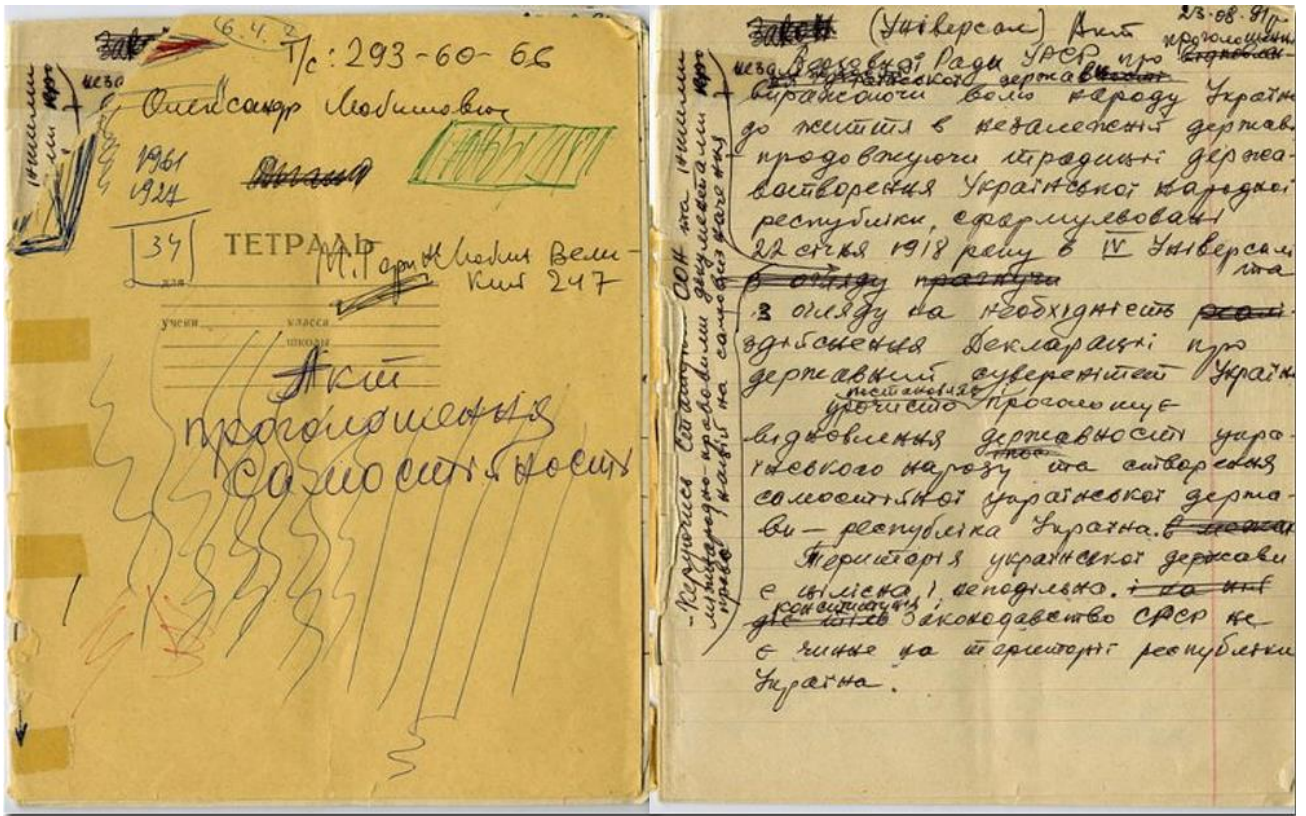 6.4.2
Т/с: 293-60-66
Олександр
1961
1927
34
ТЕТРАДЬ
М.
Вели-
кий 247
для
учени класса
школы
Акт
проголошення
самостійності
23.08.91
Закон (Універсал) Акт проголошення
Верховної Ради УРСР про
української держави
виражаючи волю народу України
до життя в незалежній державі
- продовжуючи традиції держа-
вотворення Української народної
республіки, сформульовані
22 січня 1918 року в IV Універсалі
та
з огляду прагнучи
- з огляду на необхідність
здійснення Декларації про
державний суверенітет України
постановляє
урочисто проголошує
відновлення державності укра-
їнського народу та створення
самостійної української держа-
ви — республіка Україна.
Територія української держави
є цілісна і неподільна. і на ній
конституція і
діє тіль законодавство СРСР не
є чинне на території республіки
Україна.
- Керуючись Статутом ООН та іншими
міжнародно-правовими документами про
право націй на самовизначення